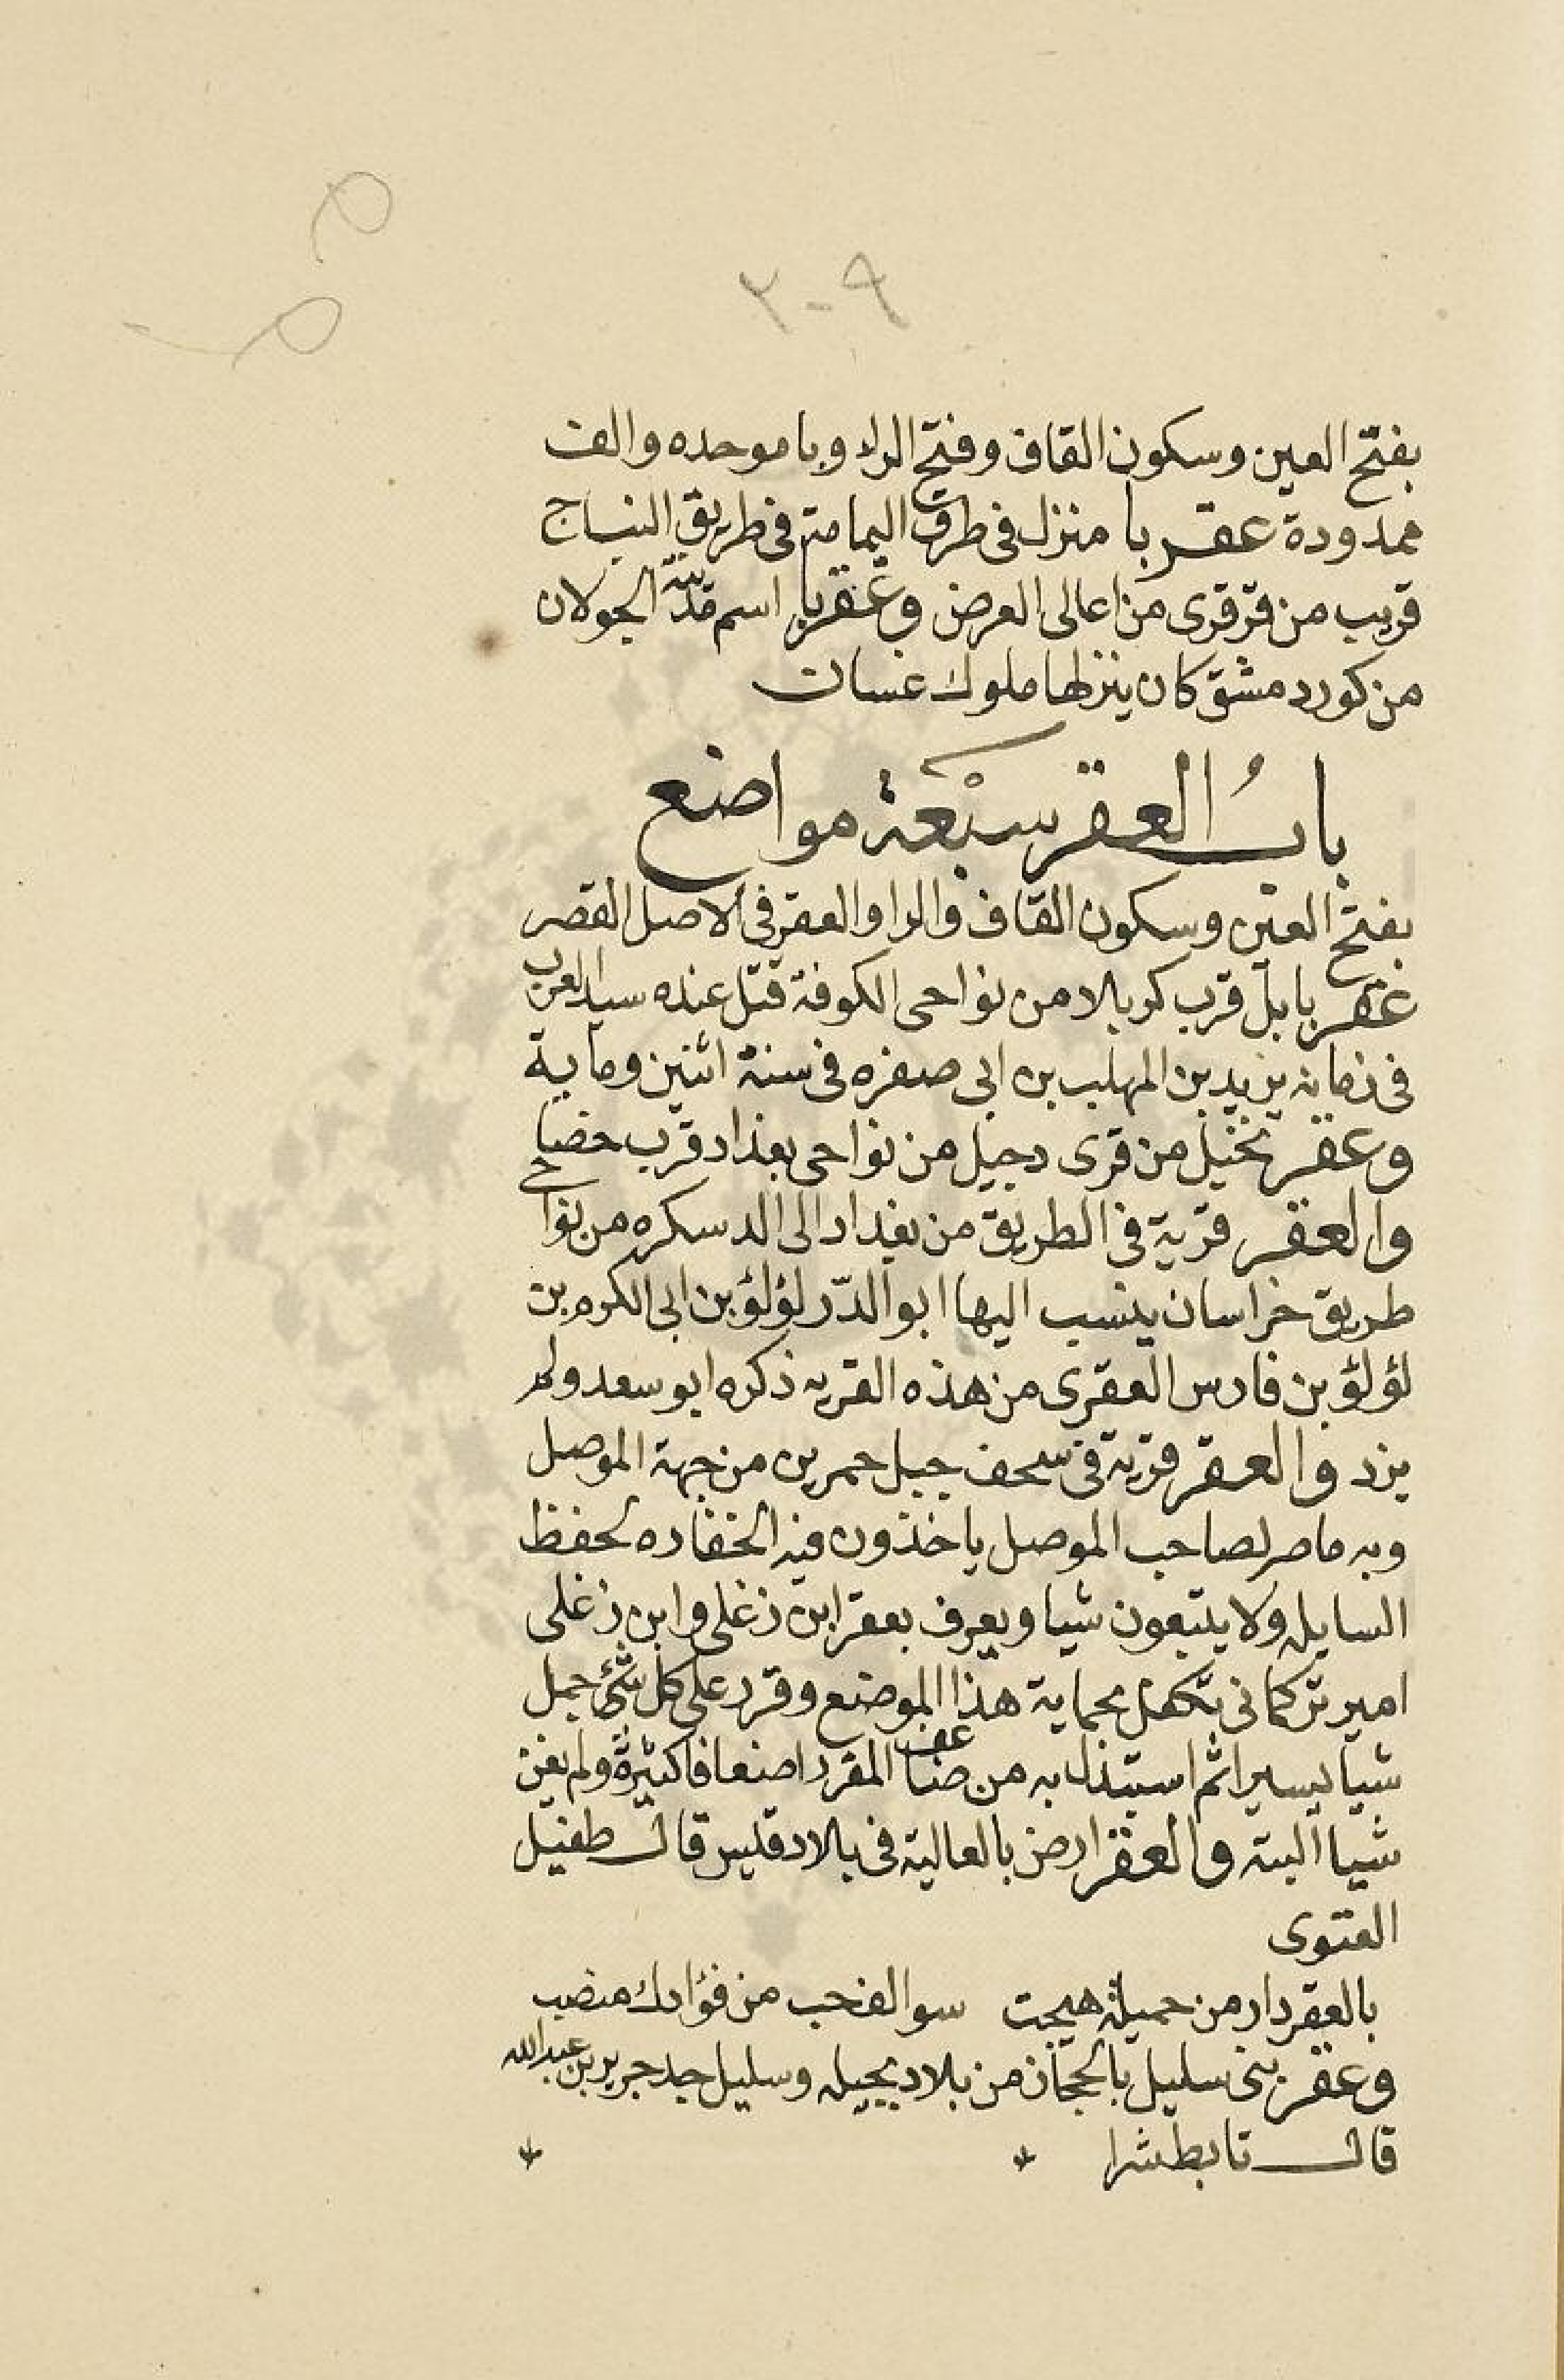 ٢٠٩
بفتح العين وسكون القاف وفتح الراء وبا موحده والف
ممدودة عقربا منزل فى طرف اليمامة فى طريق النباج
قريب من قرقرى من اعالى العرض وعقربا اسم مدينة الجولان
من كور دمشق كان ينزلها ملوك غسان
باب العقر سبعة مواضع
بفتح العين وسكون القاف والرا والعقر فى الاصل القصر
عقر بابل قرب كربلا من نواحى الكوفة قتل عنده سيد العرب
فى زمانه يزيد بن المهلب بن ابى صفره فى سنة اثنين وماية
وعقر نخيل من قرى دجيل من نواحى بغداد قرب حضبا
والعقر قرية فى الطريق من بغداد الى الدسكره من نواحى
طريق خراسان ينسب اليها ابو الدّر لؤلؤ بن ابى الكرم بن
لؤلؤ بن فارس العقرى من هذه القريه ذكره ابو سعد ولم
يزد والعقر قرية فى سحف جبل حمرين من جهة الموصل
وبه ماصر لصاحب الموصل ياخذون فيه الخفاره لحفظ
السايله ولا يتبعون شيا ويعرف بعقر ابن زغلى وابن زغلى
امير تركمانى تكفل بحماية هذا الموضع وقرر على كل شئ حمل
شيا يسيرا ثم استبذل به من ضاعف المقرر اضعافا كثيرة ولم يغن
شيا البته والعقر ارض بالعالية فى بلاد قيس قال طفيل
الغنوى
بالعقر دار من جميلة هيجت سوالف حب من فؤادك منصب
وعقر بنى سليل بالحجاز من بلاد بجيله وسليل جد جرير بن عبد الله
قال تابط شرا